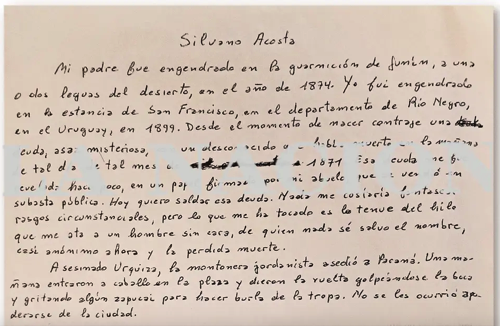 Silvano Acosta
Mi padre fue engendrado en la guarnición de Junín, a una
o dos leguas del desierto, en el año de 1874. Yo fui engendrado
en la estancia de San Francisco, en el departamento de Río Negro,
en el Uruguay, en 1899. Desde el momento de nacer contraje una
deuda, asaz misteriosa, un desconocido muerto en la mañana
de tal día de tal mes de 1871. Esa deuda me fue
hace poco, en un papel firmado por mi abuelo, que se vendió en
subasta pública. Hoy quiero saldar esa deuda. Nada me costaría
rasgos circunstanciales, pero lo que me ha tocado es lo tenue del hilo
que me ata a un hombre sin cara, de quien nada sé salvo el nombre,
casi anónimo ahora y la perdida muerte.
Asesinado Urquiza, la montonera jordanista asedió a Paraná. Una ma-
ñana entraron a caballo en la plaza y dieron la vuelta golpeándose la boca
y gritando algún zapucai para hacer burla de la tropa. No se les ocurrió apo-
derarse de la ciudad.